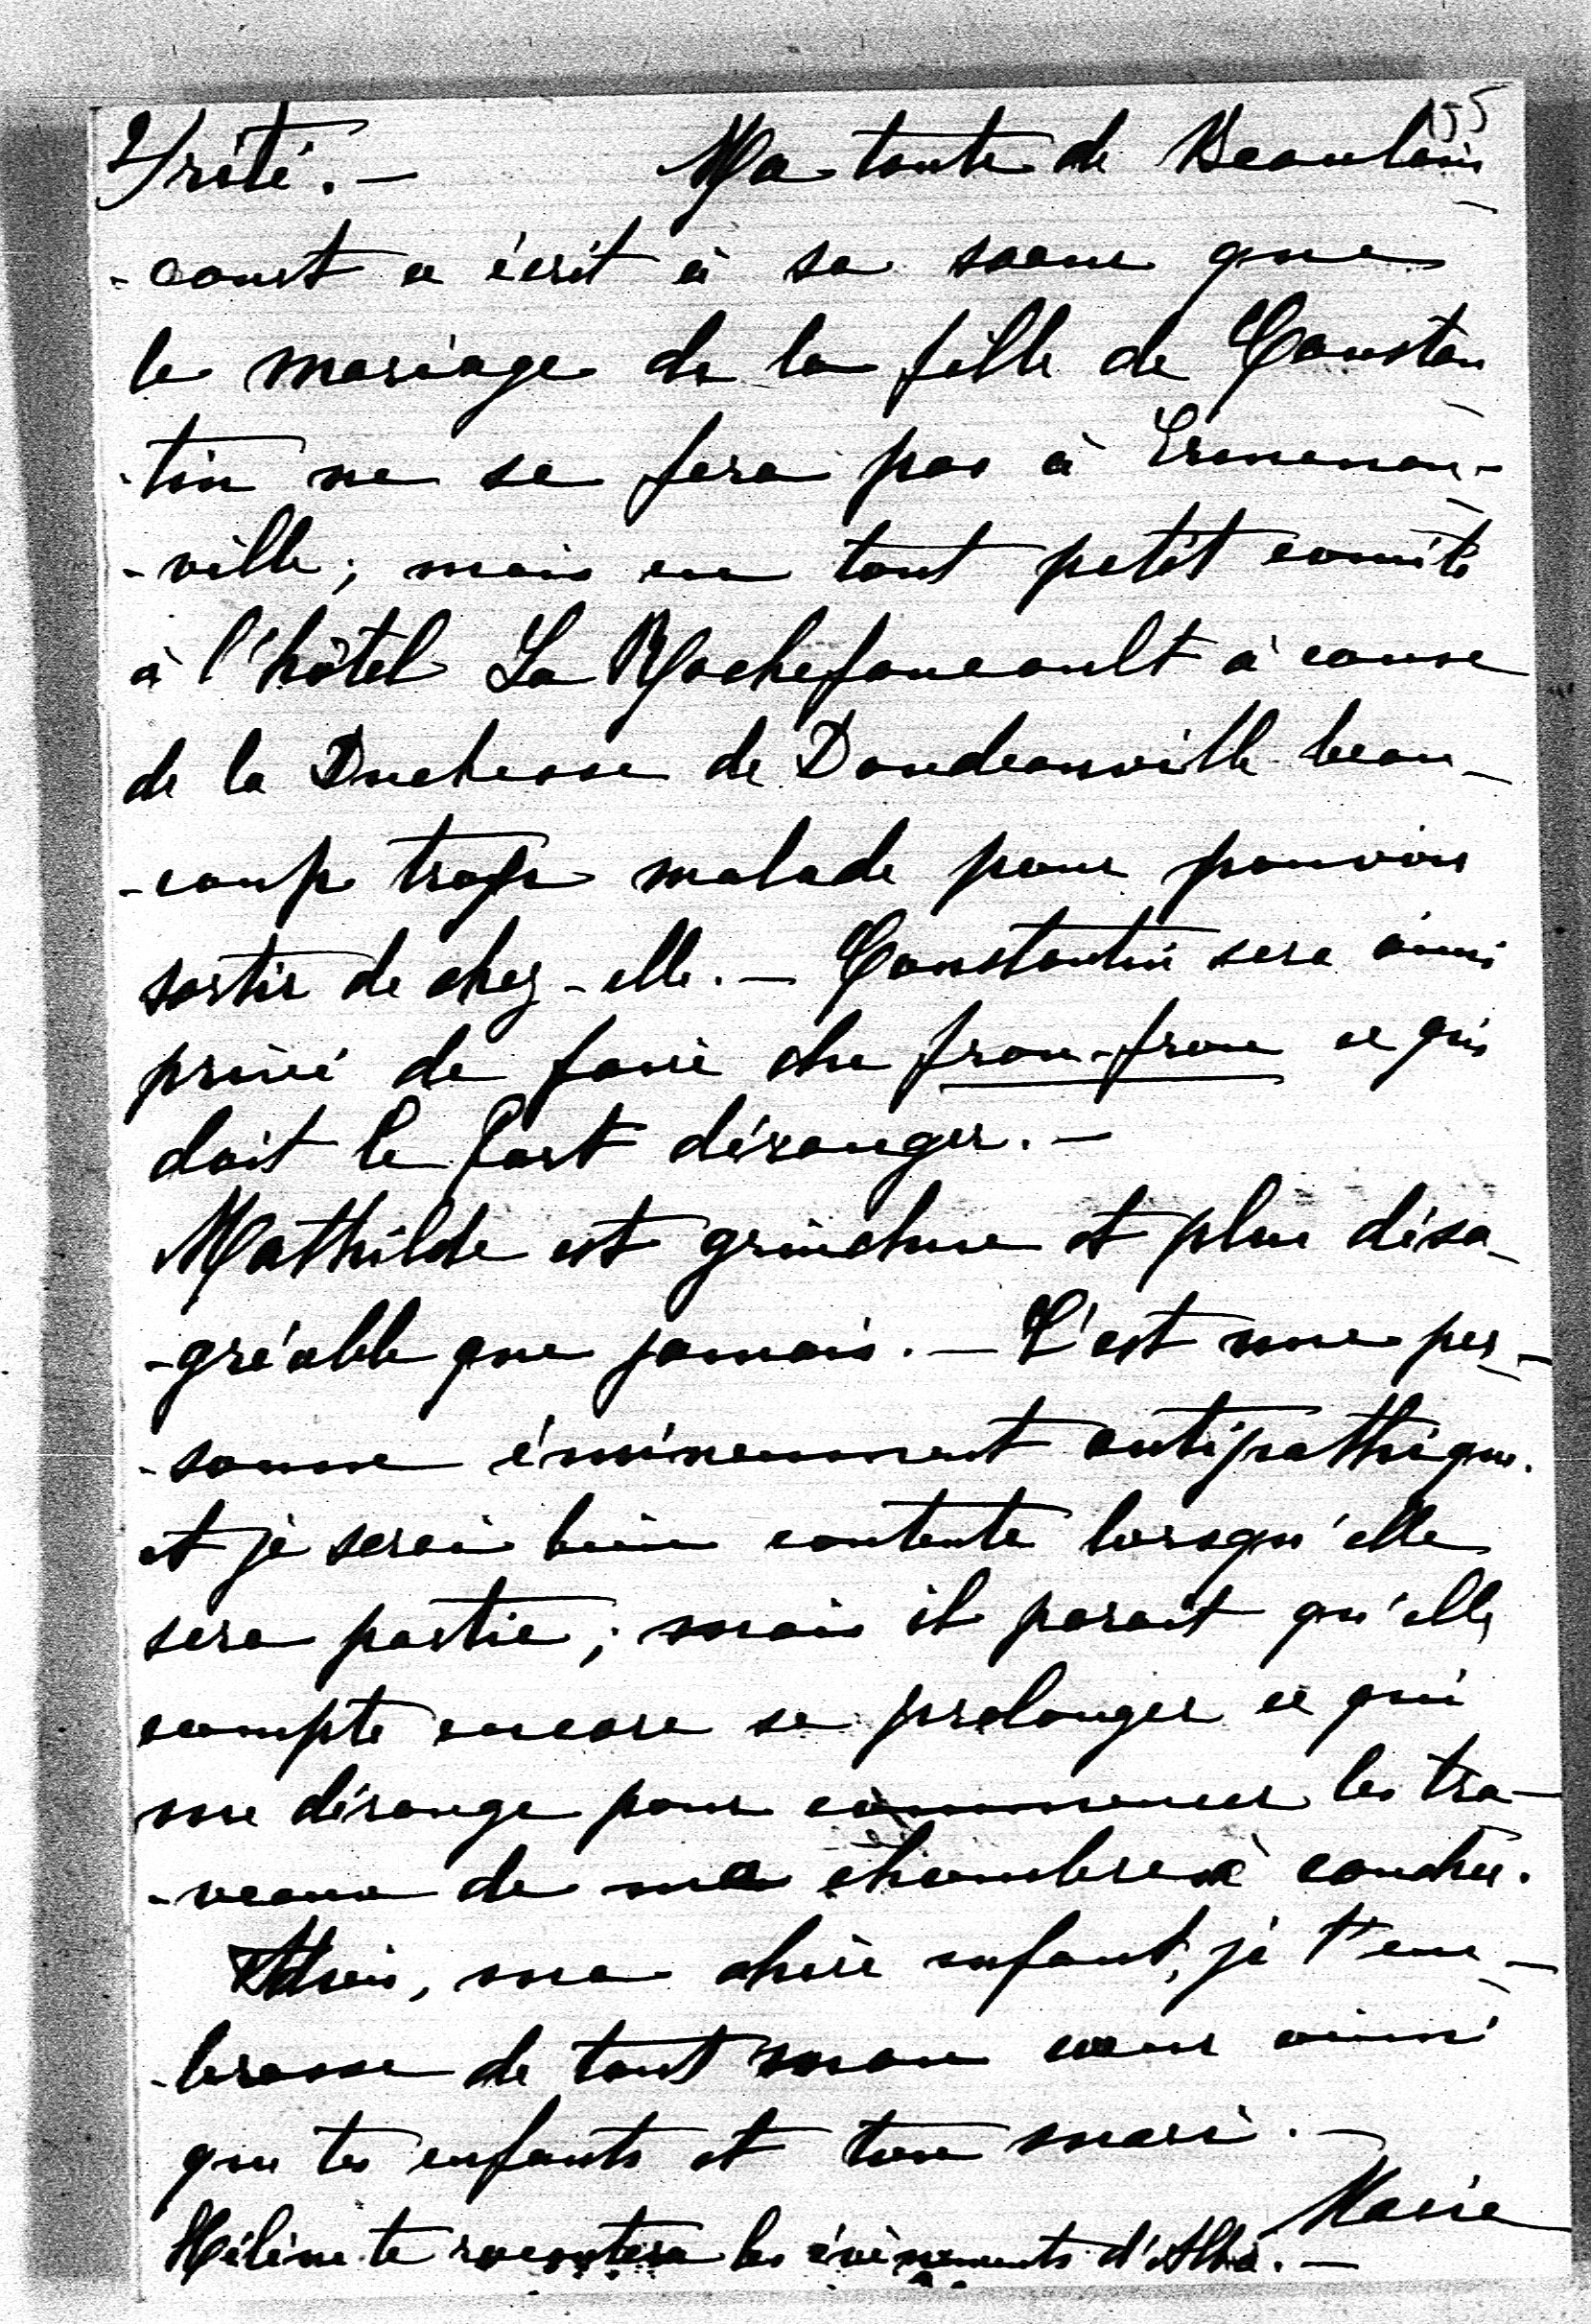 155
Yrité. — Ma tante de Beaulain
-court a écrit à sa soeur que
le mariage de la fille de Constan
-tin ne se fera pas à Ermenon-
-ville; mais en tout petit comité
à l'hôtel La Rochefoucault à cause
de la Duchesse de Doudeauville beau-
-coup trop malade pour pouvoir
sortir de chez-elle. — Constantin sera ainsi
privé de faire du frou-frou ce qui
doit le fort déranger. —
Mathilde est grincheuse et plus désa-
-gréable que jamais. — C'est une per-
-sonne éminemment antipathique.
et je serai bien contente lorsqu'elle
sera partie; mais il parait qu'elle
compte encore se prolonger ce qui
me dérange pour commencer les tra-
-veaux de ma chambre à coucher.
Adieu, ma chère enfant, je t'em-
-brasse de tout mon coeur ainsi
que tes enfants et ton mari. —
Marie
Hélène te racontera les évènements d'Alba. —